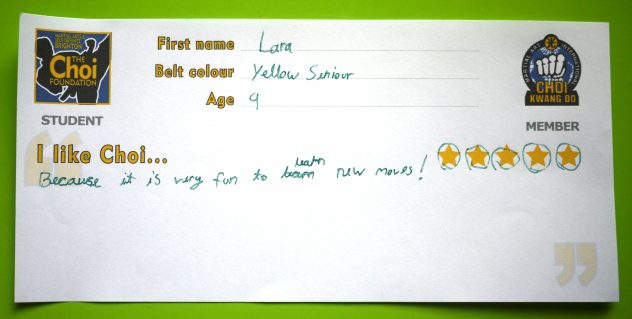 MARTIAL ARTS &
SELF DEFENCE
BRIGHTON
THE
Choi
FOUNDATION
STUDENT
First name Lara
Belt colour Yellow Seniour
Age 9
MARTIAL ART INTERNATIONAL
CHOI
KWANG DO
MEMBER
I like Choi...
Because it is very fun to learn new moves!